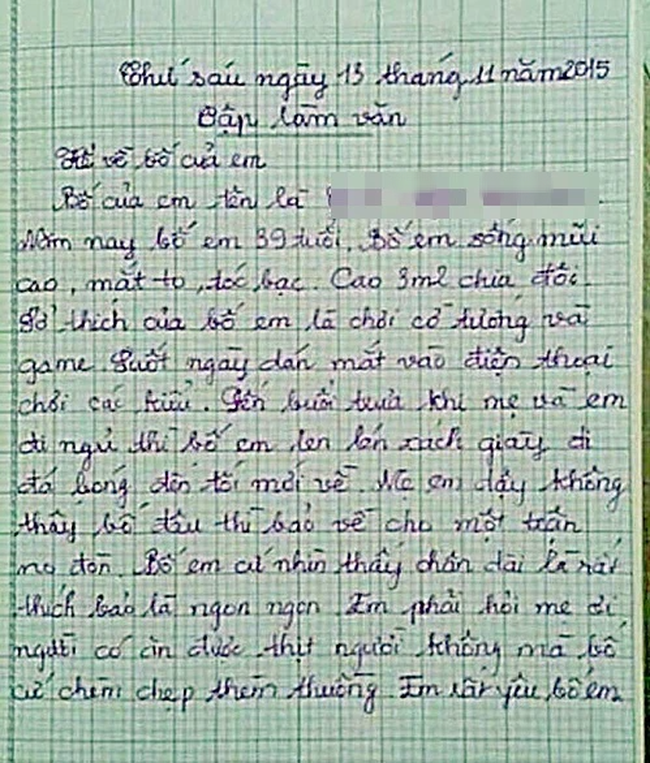 Thứ sáu ngày 13 tháng 11 năm 2015
Tập làm văn
Kể về bố của em
Bố của em tên là
Năm nay bố em 39 tuổi. Bố em sống mũi
cao, mắt to, tóc bạc. Cao 3m2 chia đôi.
Sở thích của bố em là chơi cờ tướng và
game. Suốt ngày dán mắt vào điện thoại
chơi các kiểu. Đến buổi trưa khi mẹ và em
đi ngủ thì bố em len lén xách giày đi
đá bóng đến tối mới về. Mẹ em dậy không
thấy bố đâu thì bảo về cho một trận
no đòn. Bố em cứ nhìn thấy chân dài là rất
thích bảo là ngon ngon. Em phải hỏi mẹ đi
người có ăn được thịt người không mà bố
cứ chẹm chẹp thèm thuồng. Em rất yêu bố em